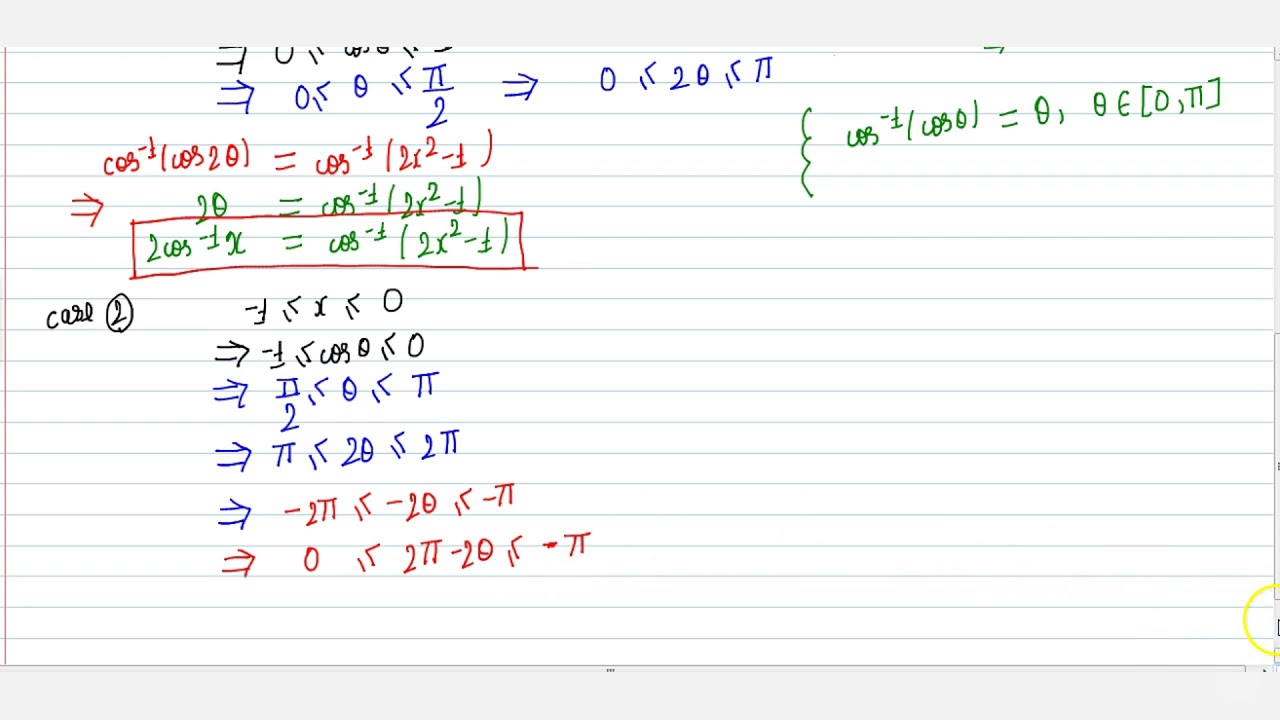 ⇒ 0 ≤ cosθ ≤ 1
⇒ 0 ≤ θ ≤ π/2 ⇒ 0 ≤ 2θ ≤ π
{ cos⁻¹(cosθ) = θ, θ ∈ [0, π]
cos⁻¹(cos2θ) = cos⁻¹(2x²-1)
⇒ 2θ = cos⁻¹(2x²-1)
2cos⁻¹x = cos⁻¹(2x²-1)
case ② -1 ≤ x ≤ 0
⇒ -1 ≤ cosθ ≤ 0
⇒ π/2 ≤ θ ≤ π
⇒ π ≤ 2θ ≤ 2π
⇒ -2π ≤ -2θ ≤ -π
⇒ 0 ≤ 2π-2θ ≤ -π